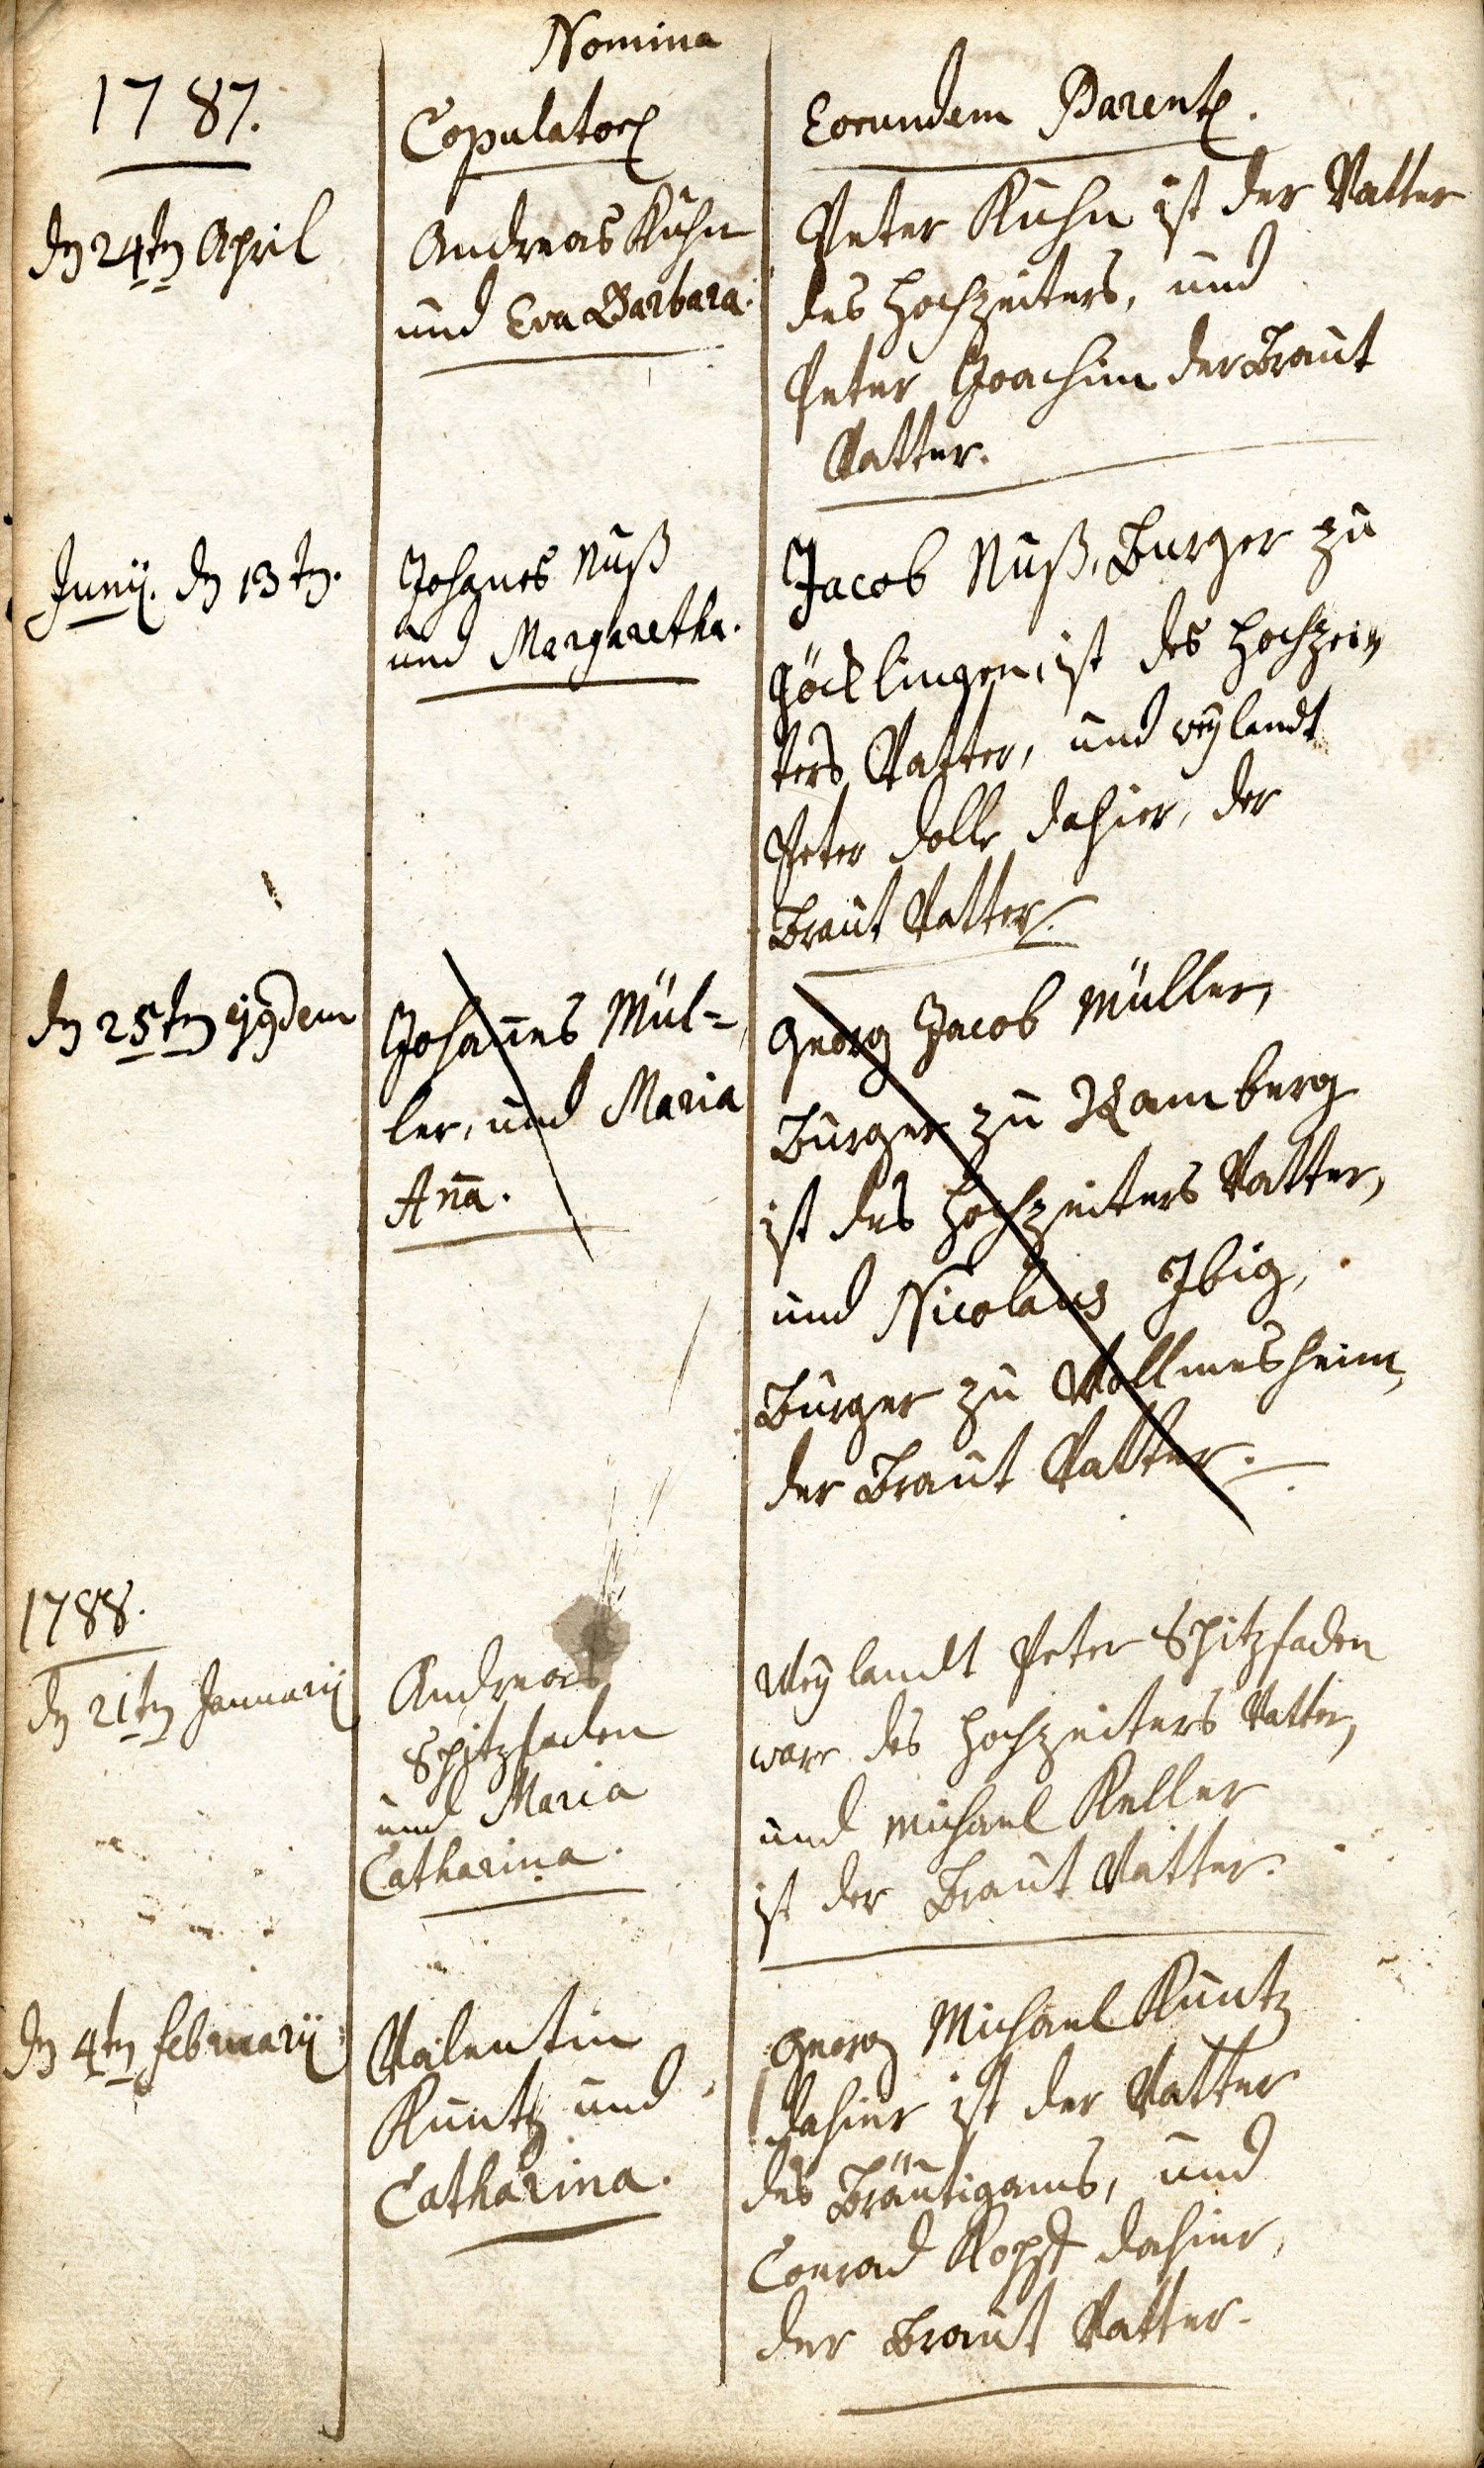 1787.
Nomina
Copulator
Eorundem Parent.
dn 24tn April
Andreas Kuhn
und Eva Barbara.
Peter Kuhn ist der Vatter
des Hochzeiters, und
Peter Joachim der Braut
Vatter.
Junij. dn 13tn.
Johanes Nuß
und Margaretha.
Jacob Nuß, Burger zu
Göcklingen, ist des Hochzei=
ters Vatter, und weylandt
Peter Dolle dahier, der
Braut Vatter.
dn 25tn ejusdem
Johañes Mül=
ler, und Maria
Aña.
Georg Jacob Müller,
Burger zu Ramberg
ist des Hochzeiters Vatter,
und Nicolaus Ibig,
Burger zu Wollmesheim,
der Braut Vatter.
1788.
dn 21tn Januarij
Andreas
Spitzfaden
und Maria
Catharina.
Weylandt Peter Spitzfaden
ware des Hochzeiters Vatter,
und Michael Keller
ist der Braut Vatter.
dn 4tn februarij
Valentin
Kuntz und
Catharina.
Georg Michael Kuntz
dahier ist der Vatter
des Bräutigams, und
Conrad Kopf dahier,
der Braut Vatter.